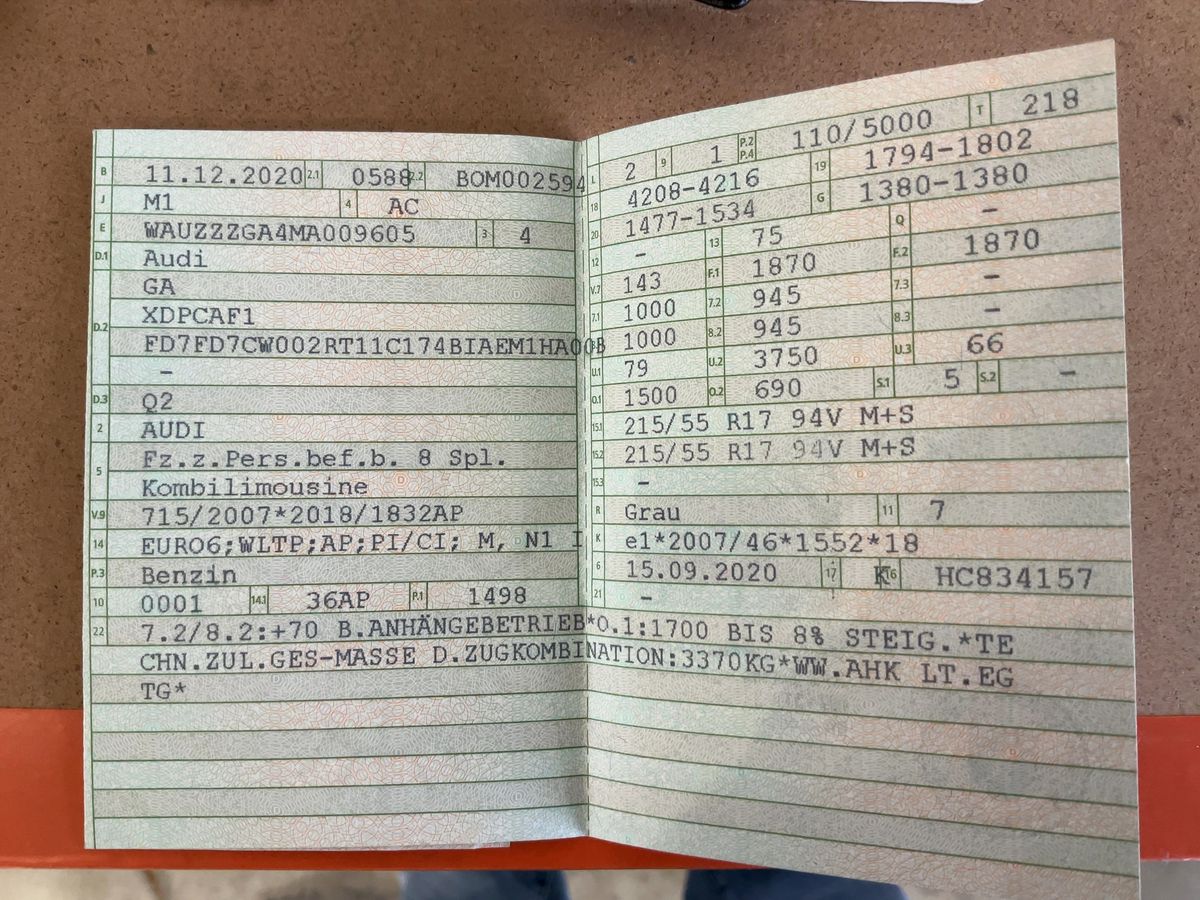 B 11.12.2020 2.1 0588 2.2 BOM002594
J M1 4 AC
E WAUZZZGA4MA009605 3 4
D.1 Audi
GA
D.2 XDPCAF1
FD7FD7CW002RT11C174BIAEM1HA00B
–
D.3 Q2
2 AUDI
5 Fz.z.Pers.bef.b. 8 Spl.
Kombilimousine
V.9 715/2007*2018/1832AP
14 EURO6;WLTP;AP;PI/CI; M, N1 I
P.3 Benzin
10 0001 14.1 36AP P.1 1498
L 2 9 1 P.2 P.4 110/5000 T 218
18 4208-4216 19 1794-1802
20 1477-1534 G 1380-1380
12 – 13 75 Q –
V.7 143 F.1 1870 F.2 1870
7.1 1000 7.2 945 7.3 –
8.1 1000 8.2 945 8.3 –
U.1 79 U.2 3750 U.3 66
O.1 1500 O.2 690 S.1 5 S.2 –
15.1 215/55 R17 94V M+S
15.2 215/55 R17 94V M+S
15.3 –
R Grau 11 7
K e1*2007/46*1552*18
6 15.09.2020 17 K 16 HC834157
21 –
22 7.2/8.2:+70 B.ANHÄNGEBETRIEB*O.1:1700 BIS 8% STEIG.*TE
CHN.ZUL.GES-MASSE D.ZUGKOMBINATION:3370KG*WW.AHK LT.EG
TG*